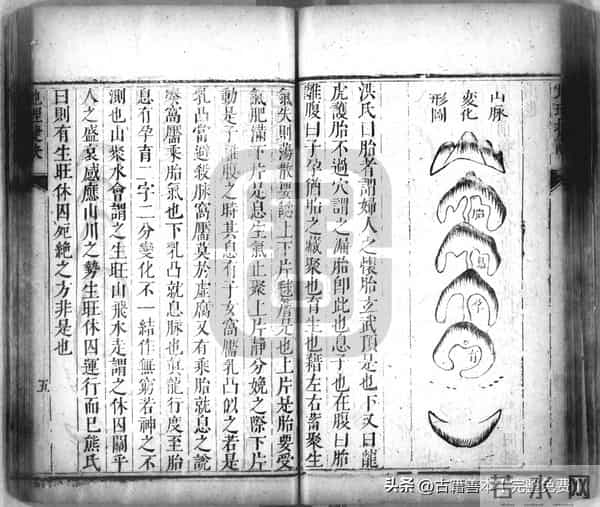 山脉
變化
形圖
胎
息
孕
育
洪氏曰胎者謂婦人之懷胎玄武頂是也下又曰龍
虎護胎不過穴謂之漏胎卽此也息子也在腹曰胎
離腹曰子孕猶胎之藏聚也育生也藉左右蓄聚生
氣失則蕩散要認上下片毬簷是也上片是胎要受
氣肥滿下片是息生氣止聚上片靜分娩之際下片
動是子離腹之時其息有窩靨乳凸似之若是
乳凸當避殺脉窩靨莫於虛腐又有乘胎就息之說
窩靨乘胎氣也下乳凸就息脉也龍行度至胎
息有孕育二字二分變化不一結作無窮若神之不
測也山聚水會謂之生旺山飛水走謂之休囚關乎
人之盛衰感應山川之勢生旺休囚運行而已熊氏
曰則有生旺休囚死絶之方非是也
地理
五
头条 @古籍善本(完整免费)
若水网